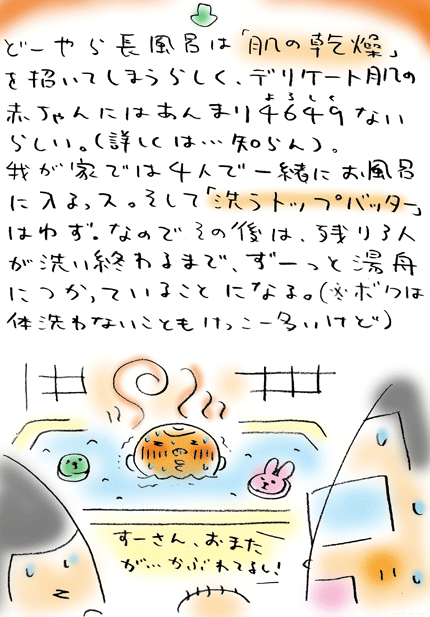 どーやら長風呂は「肌の乾燥」
を招いてしまうらしく、デリケート肌の
赤ちゃんにはあんまり4649ない
よろしく
らしい。(詳しくは…知らん)。
我が家では4人で一緒にお風呂
に入るっス。そして「洗うトップバッター」
はわず。なのでその後は、残り3人
が洗い終わるまで、ずーっと湯舟
につかっていることになる。(※ボクは
体洗わないこともけっこー多いけど)
すーさん、おまた
が…かぶれてるし!